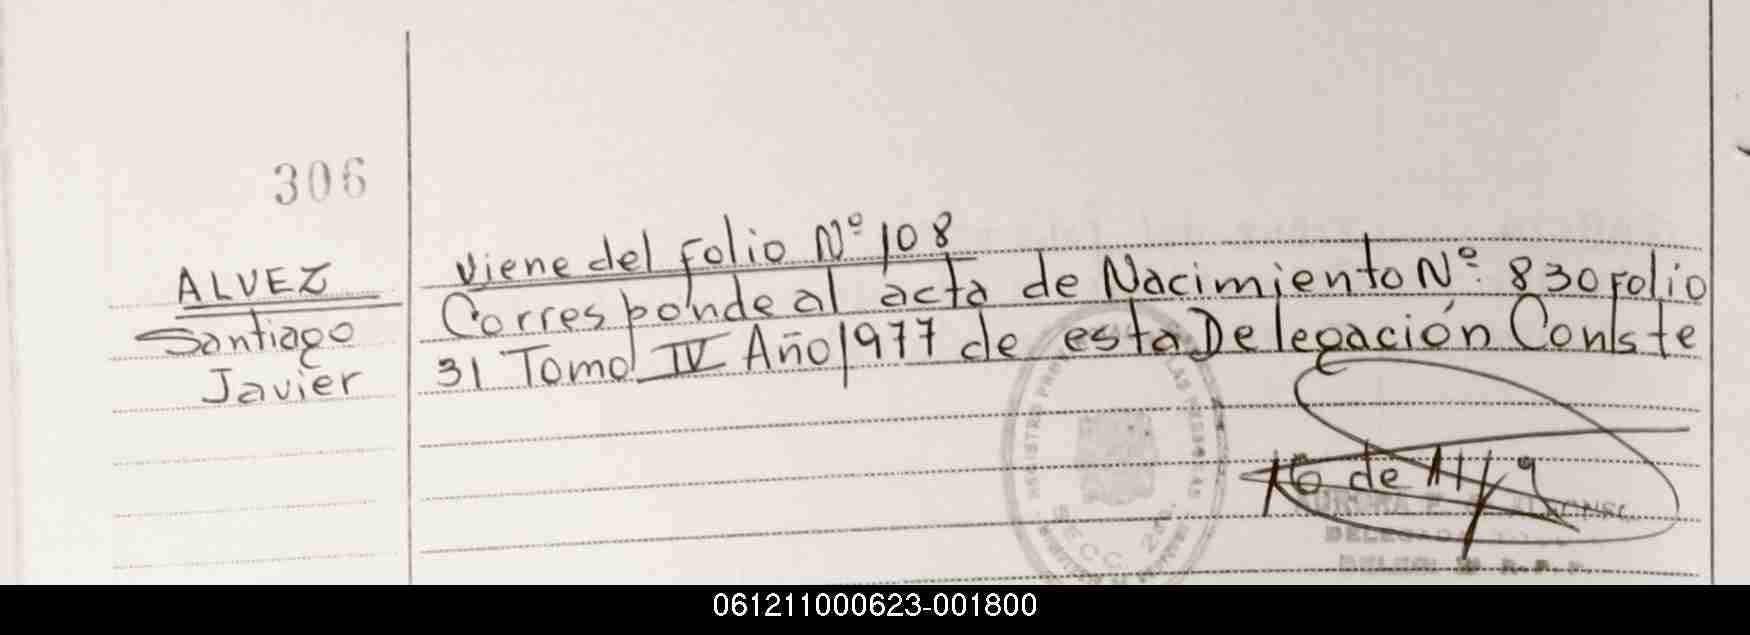 306
ALVEZ
Santiago
Javier
Viene del Folio Nº 108
Corresponde al acta de Nacimiento Nº 830 Folio
31 Tomo IV Año 1977 de esta Delegación Conste
SECC. 2
DELEGADA
061211000623-001800